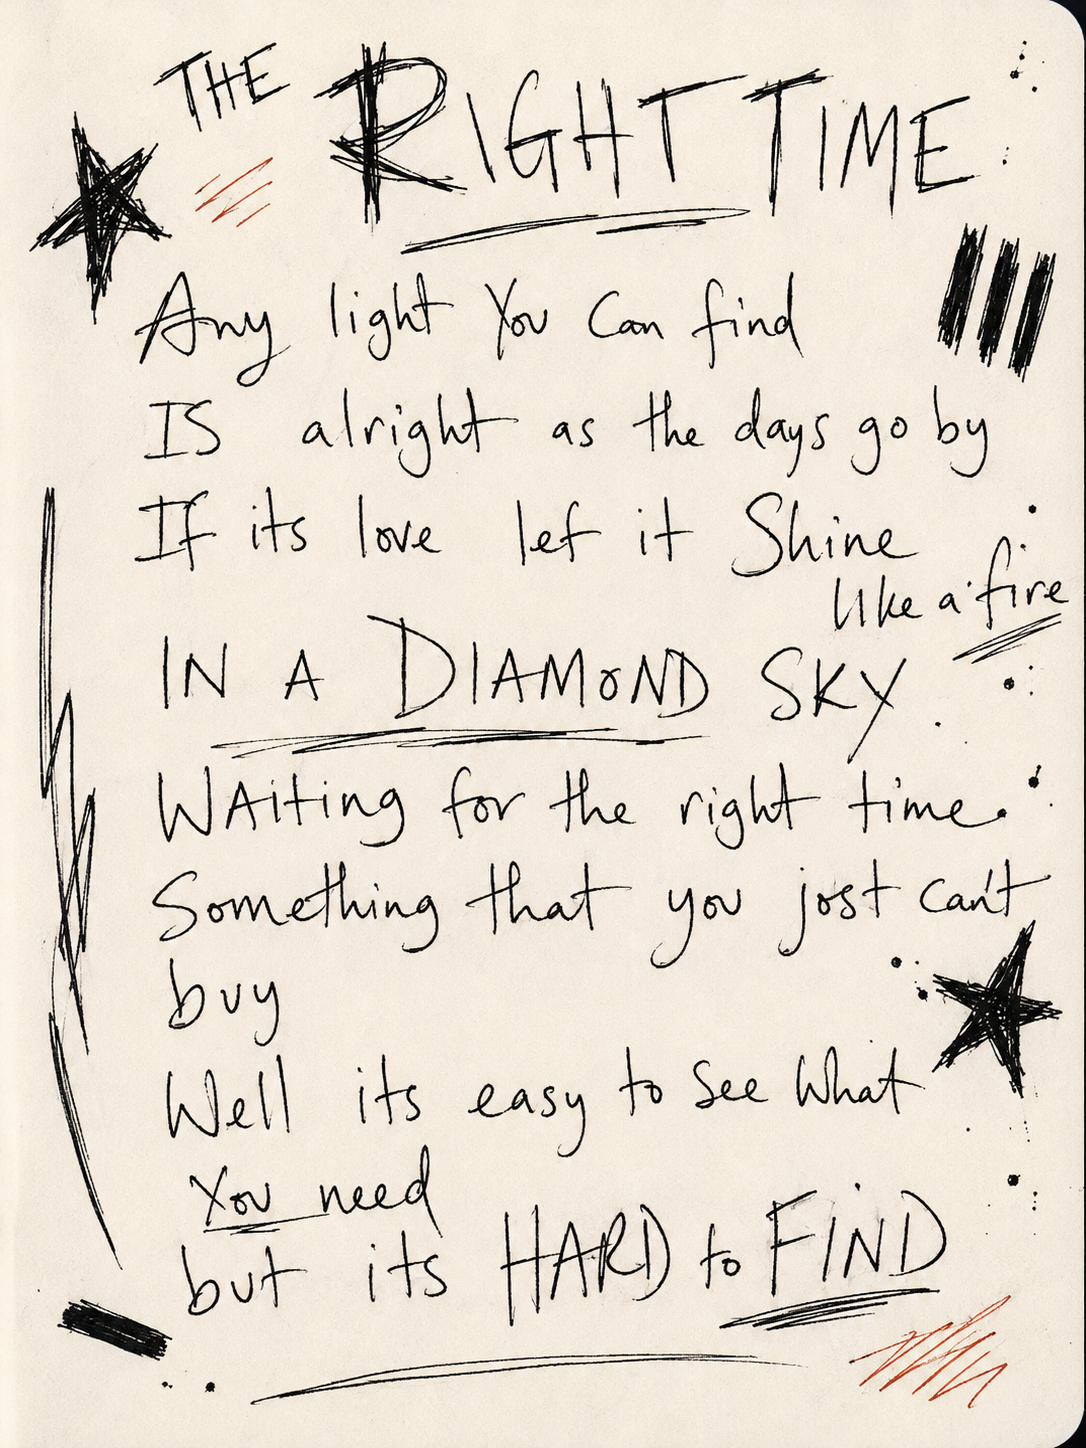 THE RIGHT TIME
Any light You Can find
IS alright as the days go by
If its love let it Shine
like a fire
IN A DIAMOND SKY
WAiting for the right time.
Something that you jost can't
buy
Well its easy to See What
You need
but its HARD to FiND